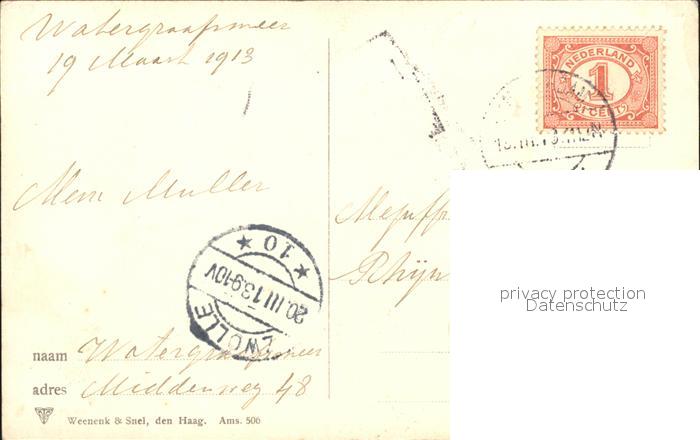 Watergraafsmeer
19 Maart 1913
NEDERLAND
1
CENT
19.III.13.
Mem Muller
Mejuffr
Rhijn
10
20.III.13.9-10V
ZWOLLE
privacy protection
Datenschutz
naam Watergraafsmeer
adres Middenweg 48
Weenenk & Snel, den Haag. Ams. 506